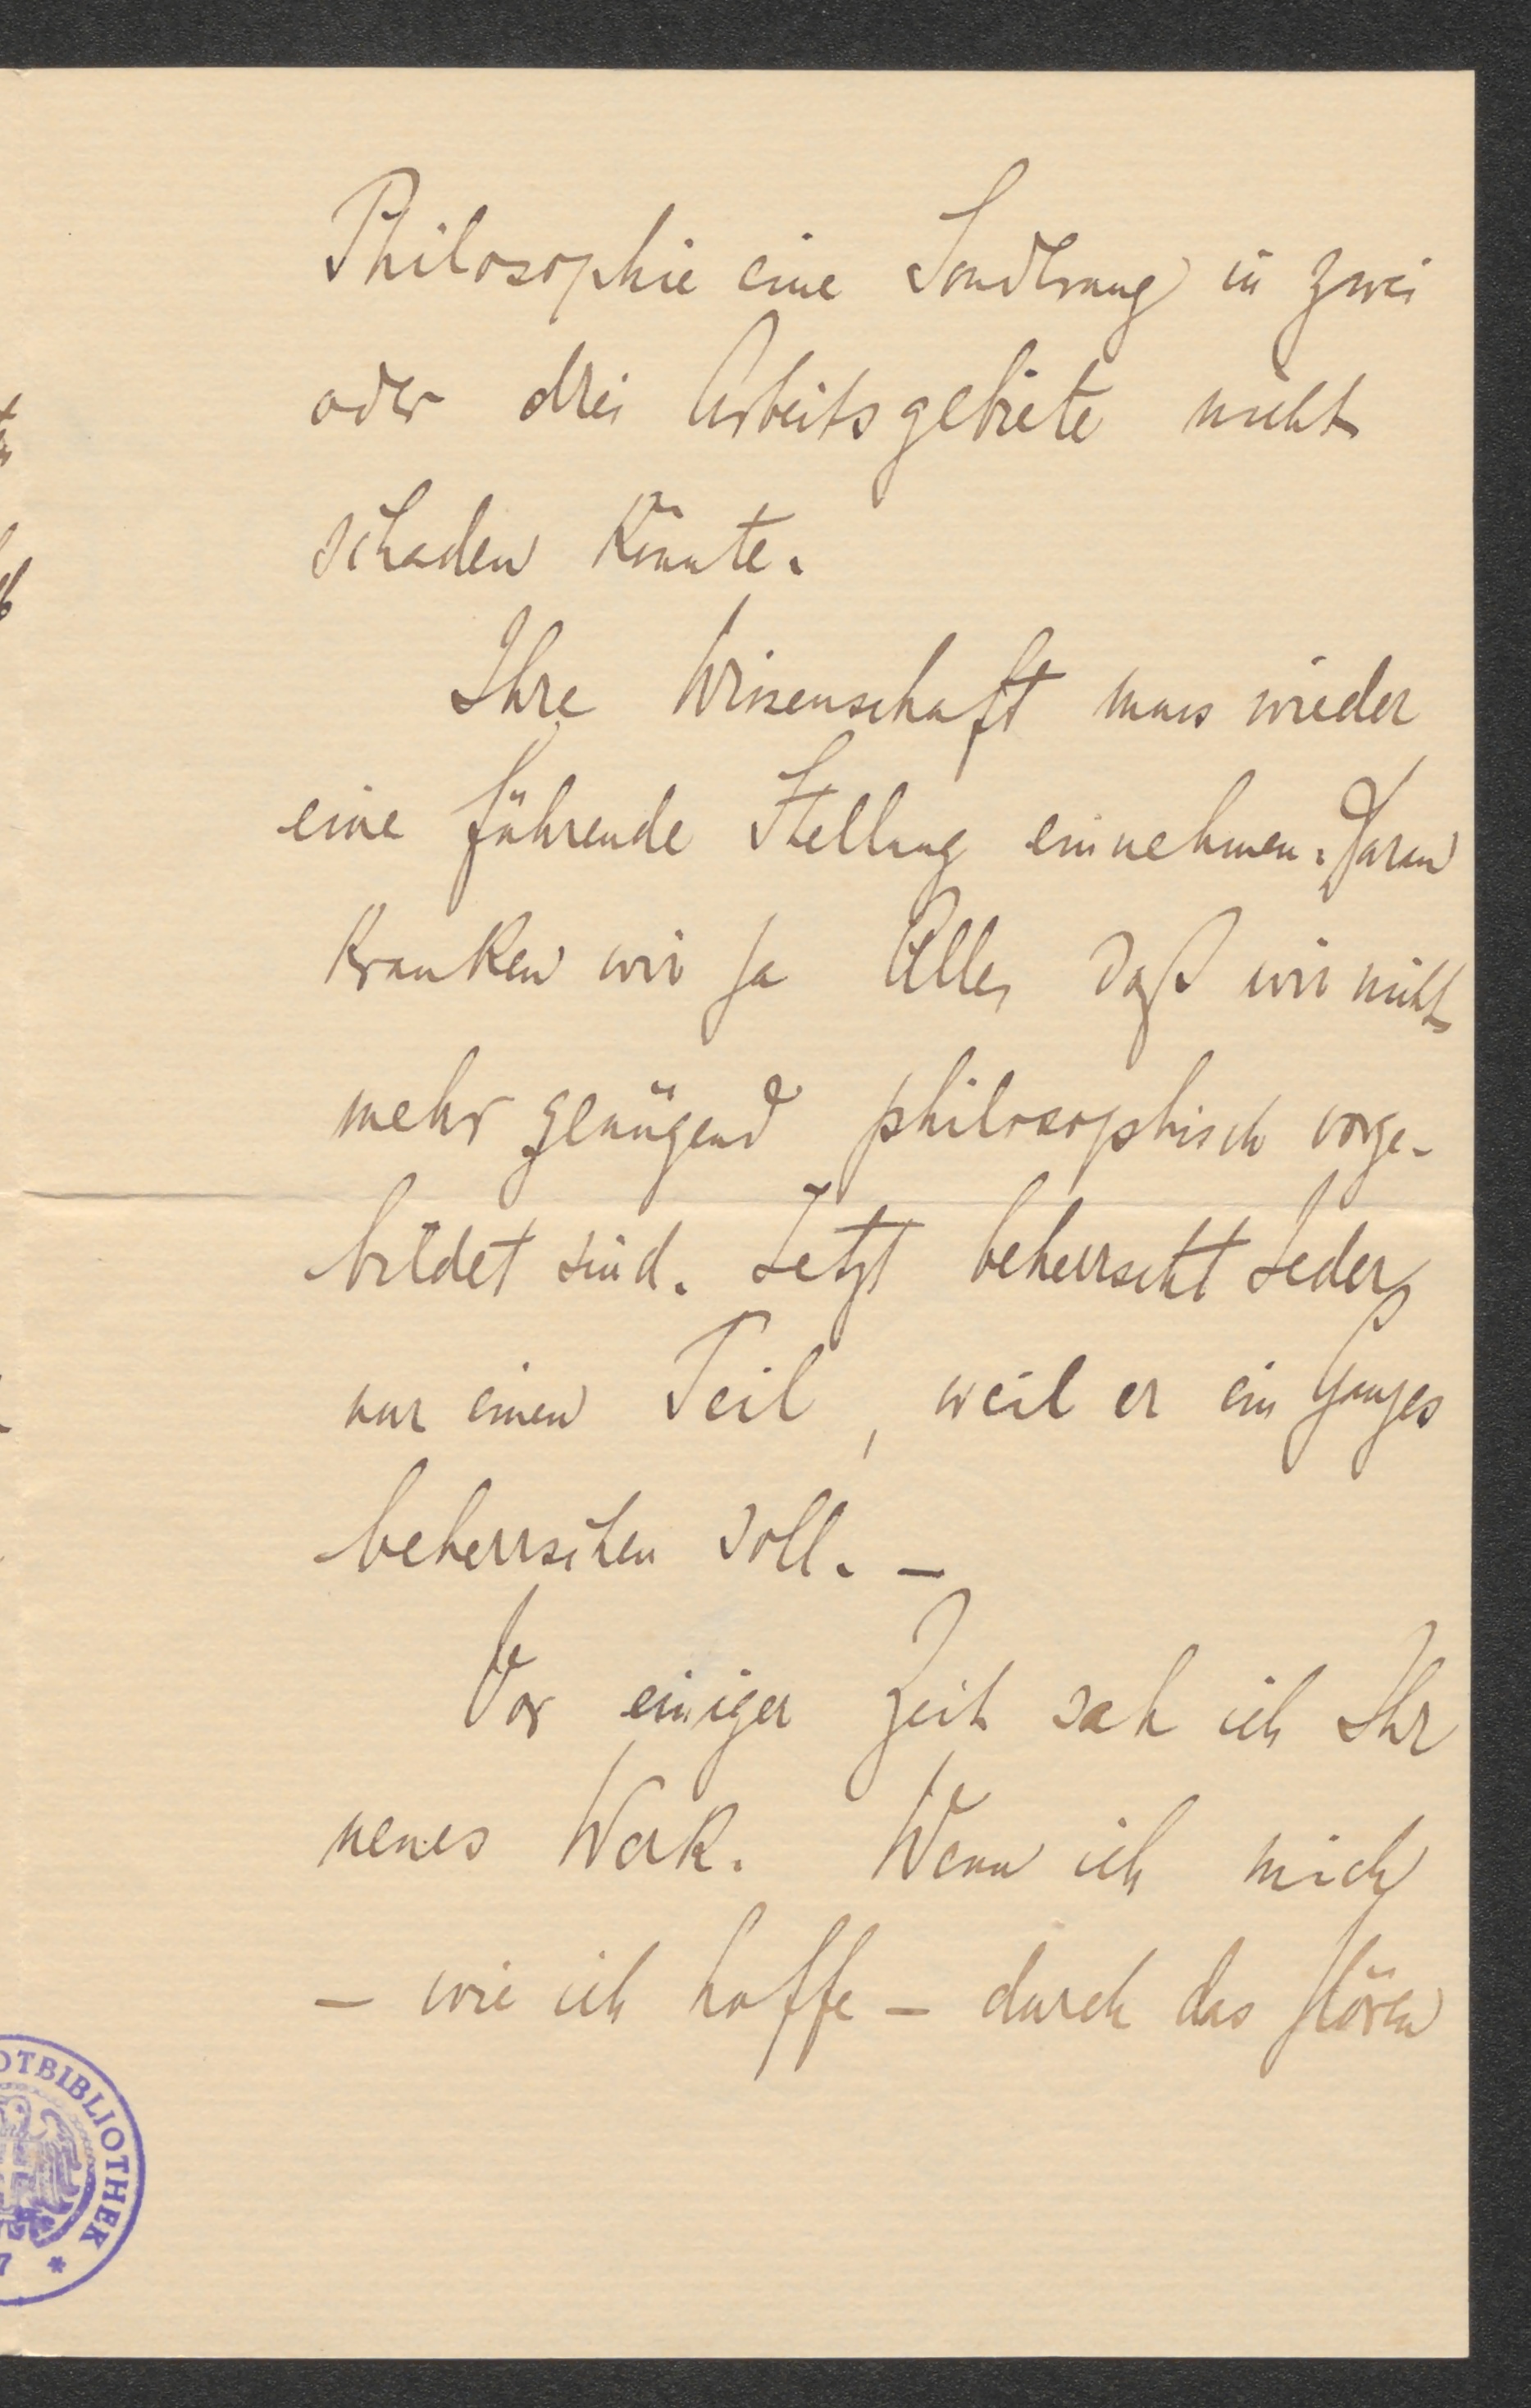 Philosophie eine Sonderung in zwei
oder drei Arbeitsgebiete nicht
schaden könnte.
Ihre Wissenschaft muss wieder
eine führende Stellung einnehmen. Daran
kranken wir ja Alle, daß wir nicht
mehr genügend philosophisch vorge-
bildet sind. Jetzt beherrscht Jeder
nur einen Teil, weil er ein Ganzes
beherrschen soll. –
Vor einiger Zeit sah ich Ihr
neues Werk. Wenn ich mich
– wie ich hoffe – durch das Hören
OTBIBLIOTHEK
7 *